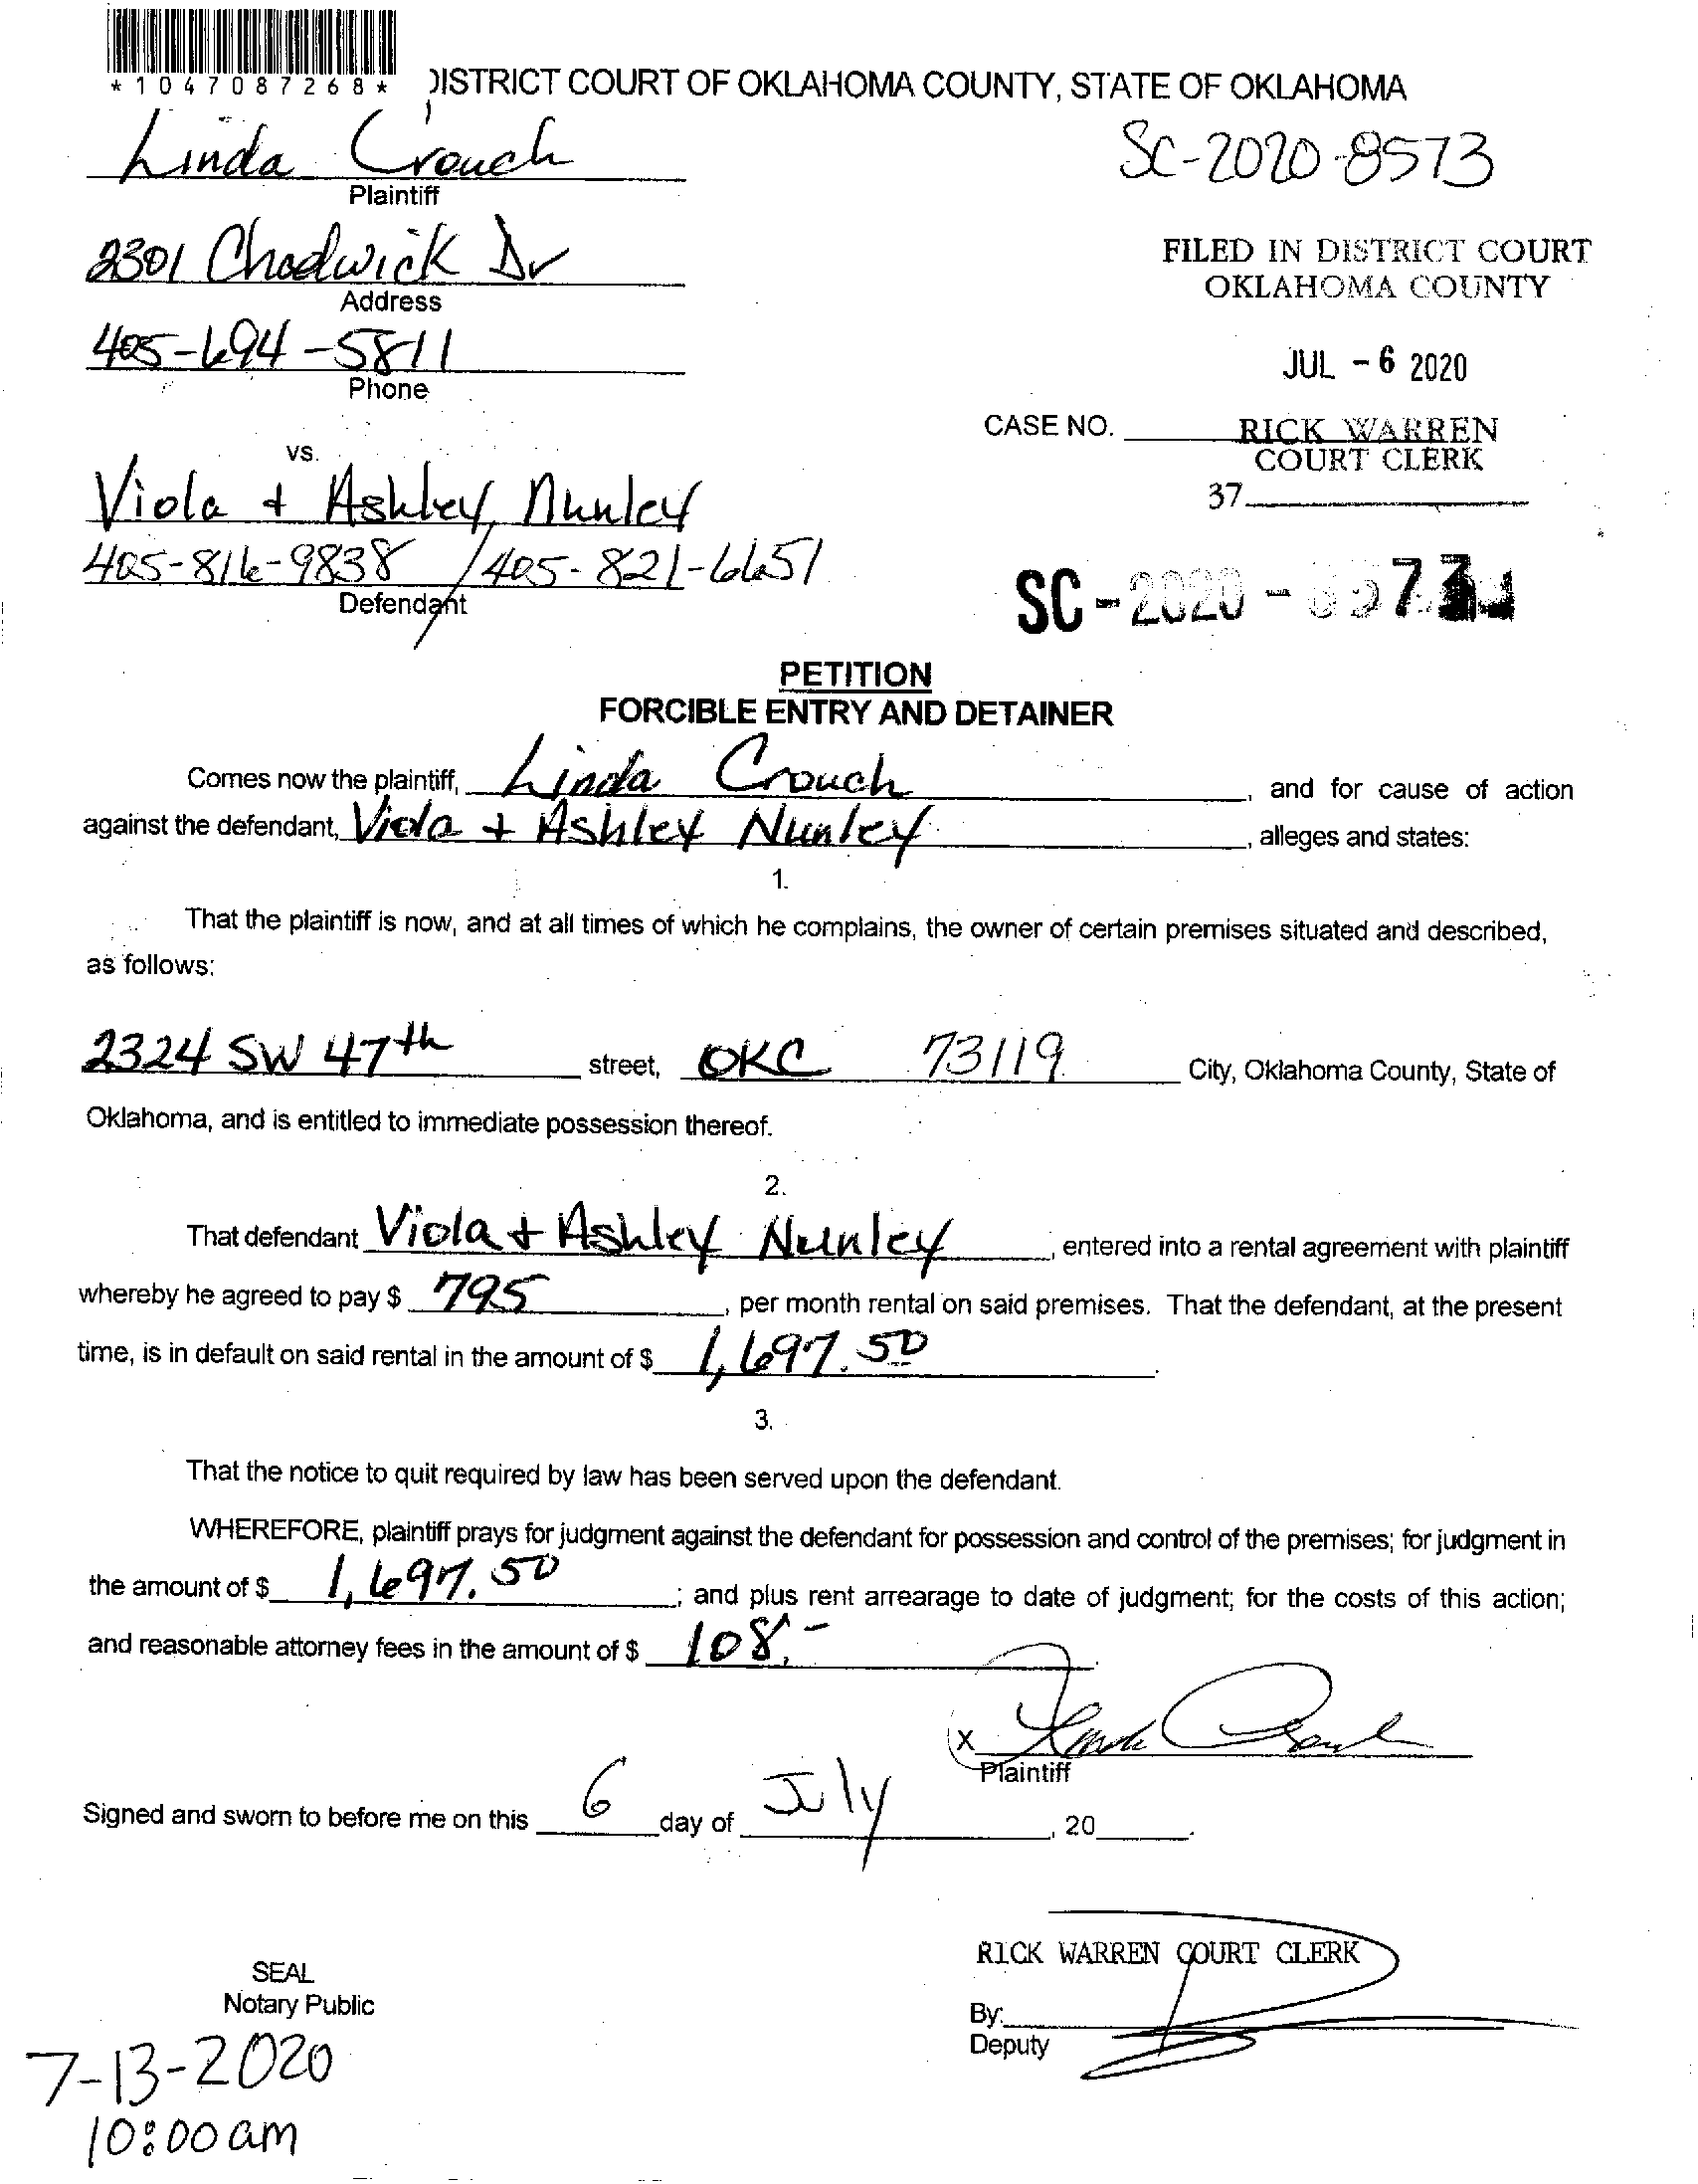 *1047087268*
DISTRICT COURT OF OKLAHOMA COUNTY, STATE OF OKLAHOMA
Linda Crouch
Plaintiff
SC-2020-8573
2301 Chadwick Dr
Address
FILED IN DISTRICT COURT
OKLAHOMA COUNTY
405-694-5811
Phone
JUL - 6 2020
CASE NO.
RICK WARREN
COURT CLERK
37
vs.
Viola + Ashley Nunley
405-816-9838 / 405-821-6651
Defendant
SC-2020-
PETITION
FORCIBLE ENTRY AND DETAINER
Comes now the plaintiff, Linda Crouch, and for cause of action
against the defendant, Viola + Ashley Nunley, alleges and states:
1.
That the plaintiff is now, and at all times of which he complains, the owner of certain premises situated and described,
as follows:
2324 SW 47th street, OKC 73119 City, Oklahoma County, State of
Oklahoma, and is entitled to immediate possession thereof.
2.
That defendant Viola + Ashley Nunley, entered into a rental agreement with plaintiff
whereby he agreed to pay $ 795, per month rental on said premises. That the defendant, at the present
time, is in default on said rental in the amount of $ 1,697.50.
3.
That the notice to quit required by law has been served upon the defendant.
WHEREFORE, plaintiff prays for judgment against the defendant for possession and control of the premises; for judgment in
the amount of $ 1,697.50; and plus rent arrearage to date of judgment; for the costs of this action;
and reasonable attorney fees in the amount of $ 108.-.
x Linda Crouch
Plaintiff
Signed and sworn to before me on this 6 day of July, 20.
RICK WARREN COURT CLERK
SEAL
Notary Public
By:
Deputy
7-13-2020
10:00am